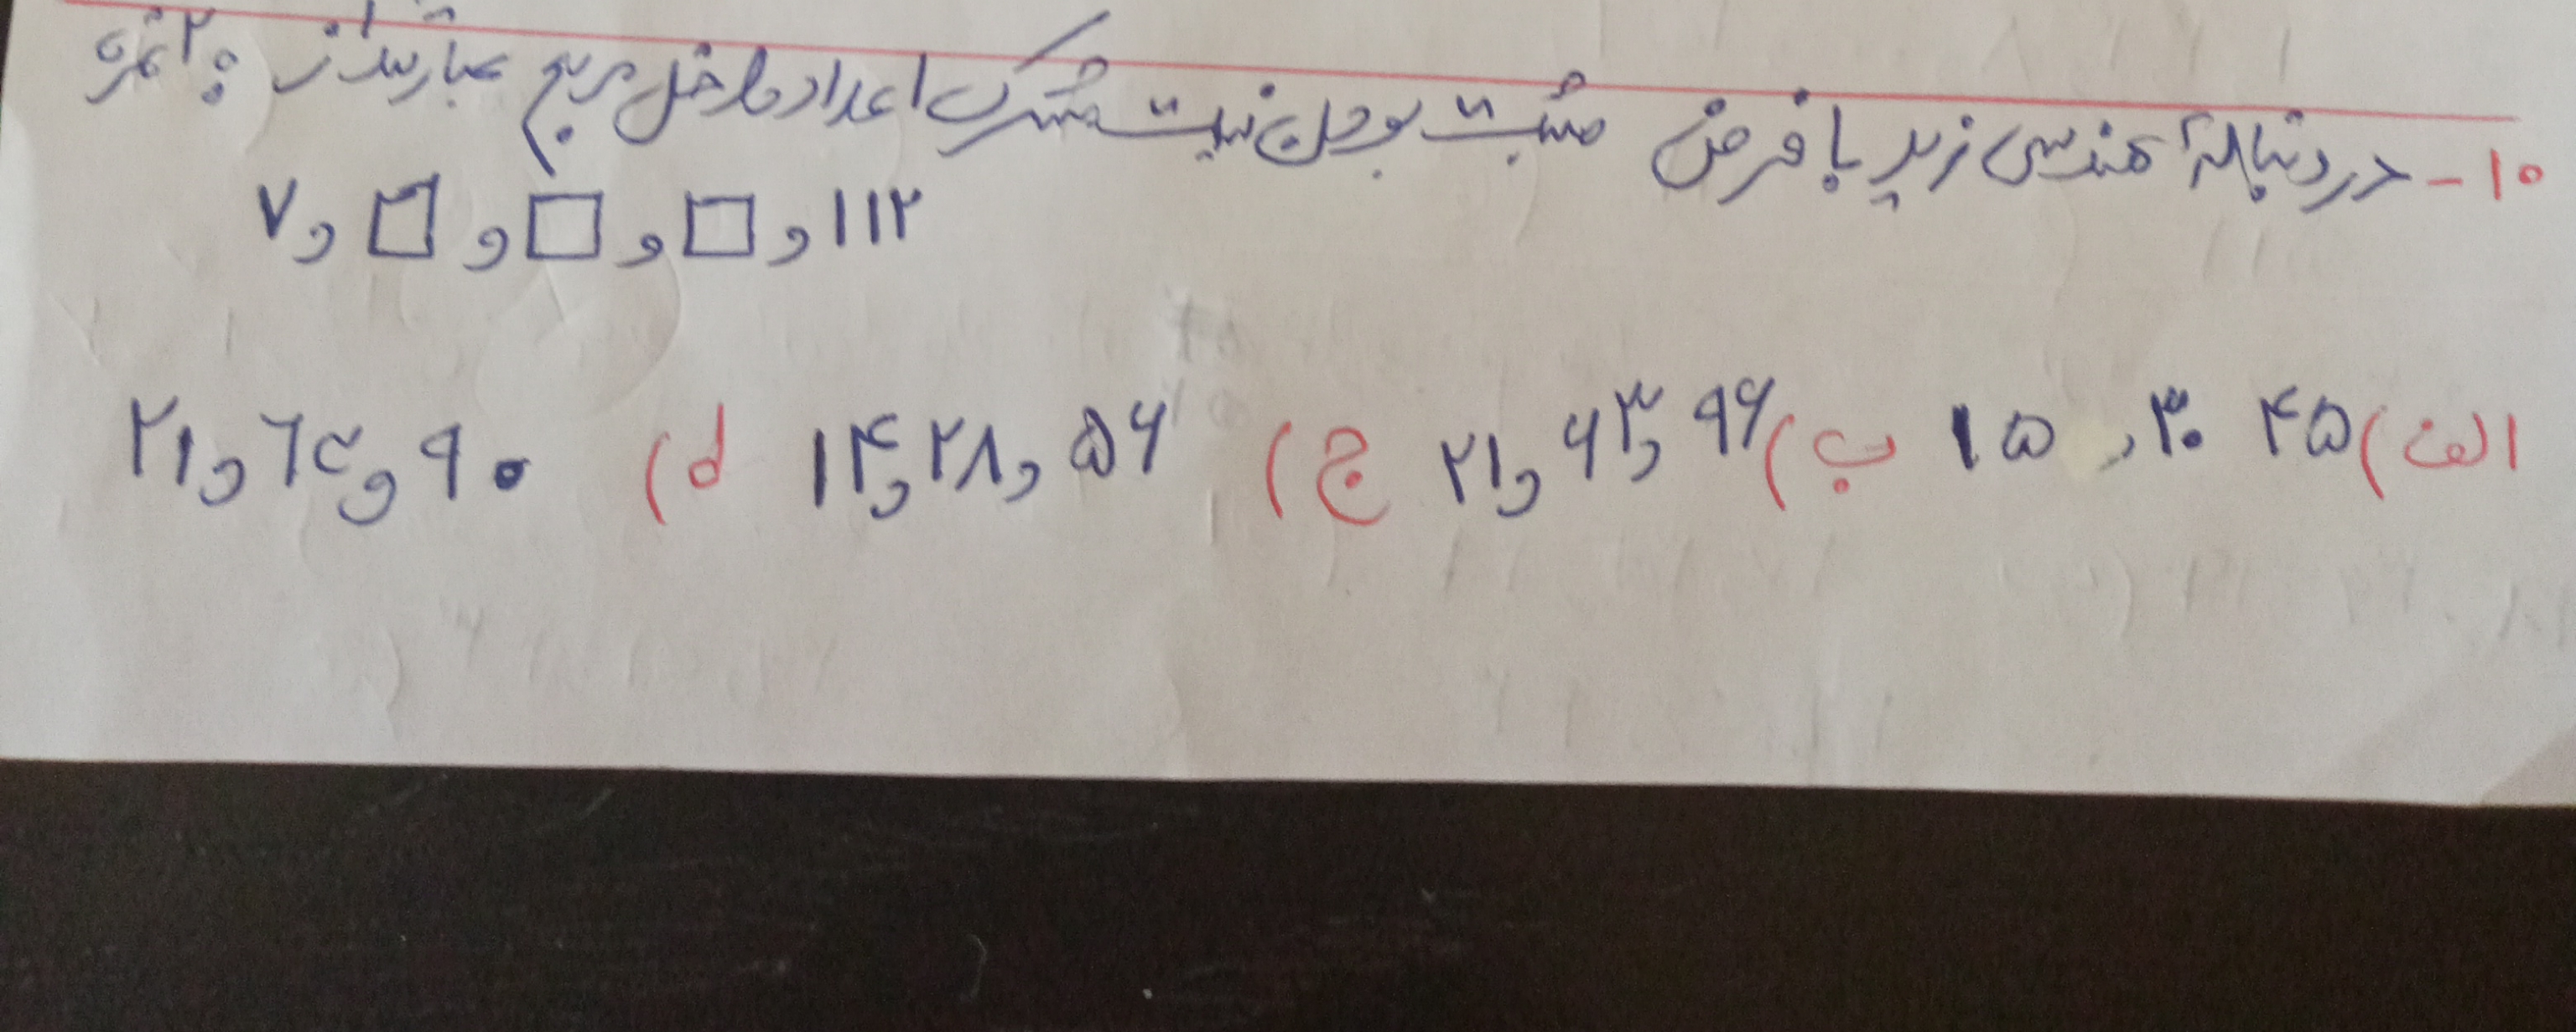 ۱۰- در دنبالهٔ هندسی زیر با فرض مثبت بودن نسبت مشترک اعداد داخل مربع عبارتند از: ۲ نمره
۷ و □ و □ و □ و ۱۱۲
الف) ۴۵ ۳۰، ۱۵ ب) ۲۱ و ۶۳ و ۹۶ ج) ۱۴ و ۲۸ و ۵۶ د) ۲۱ و ۶۴ و ۹۰